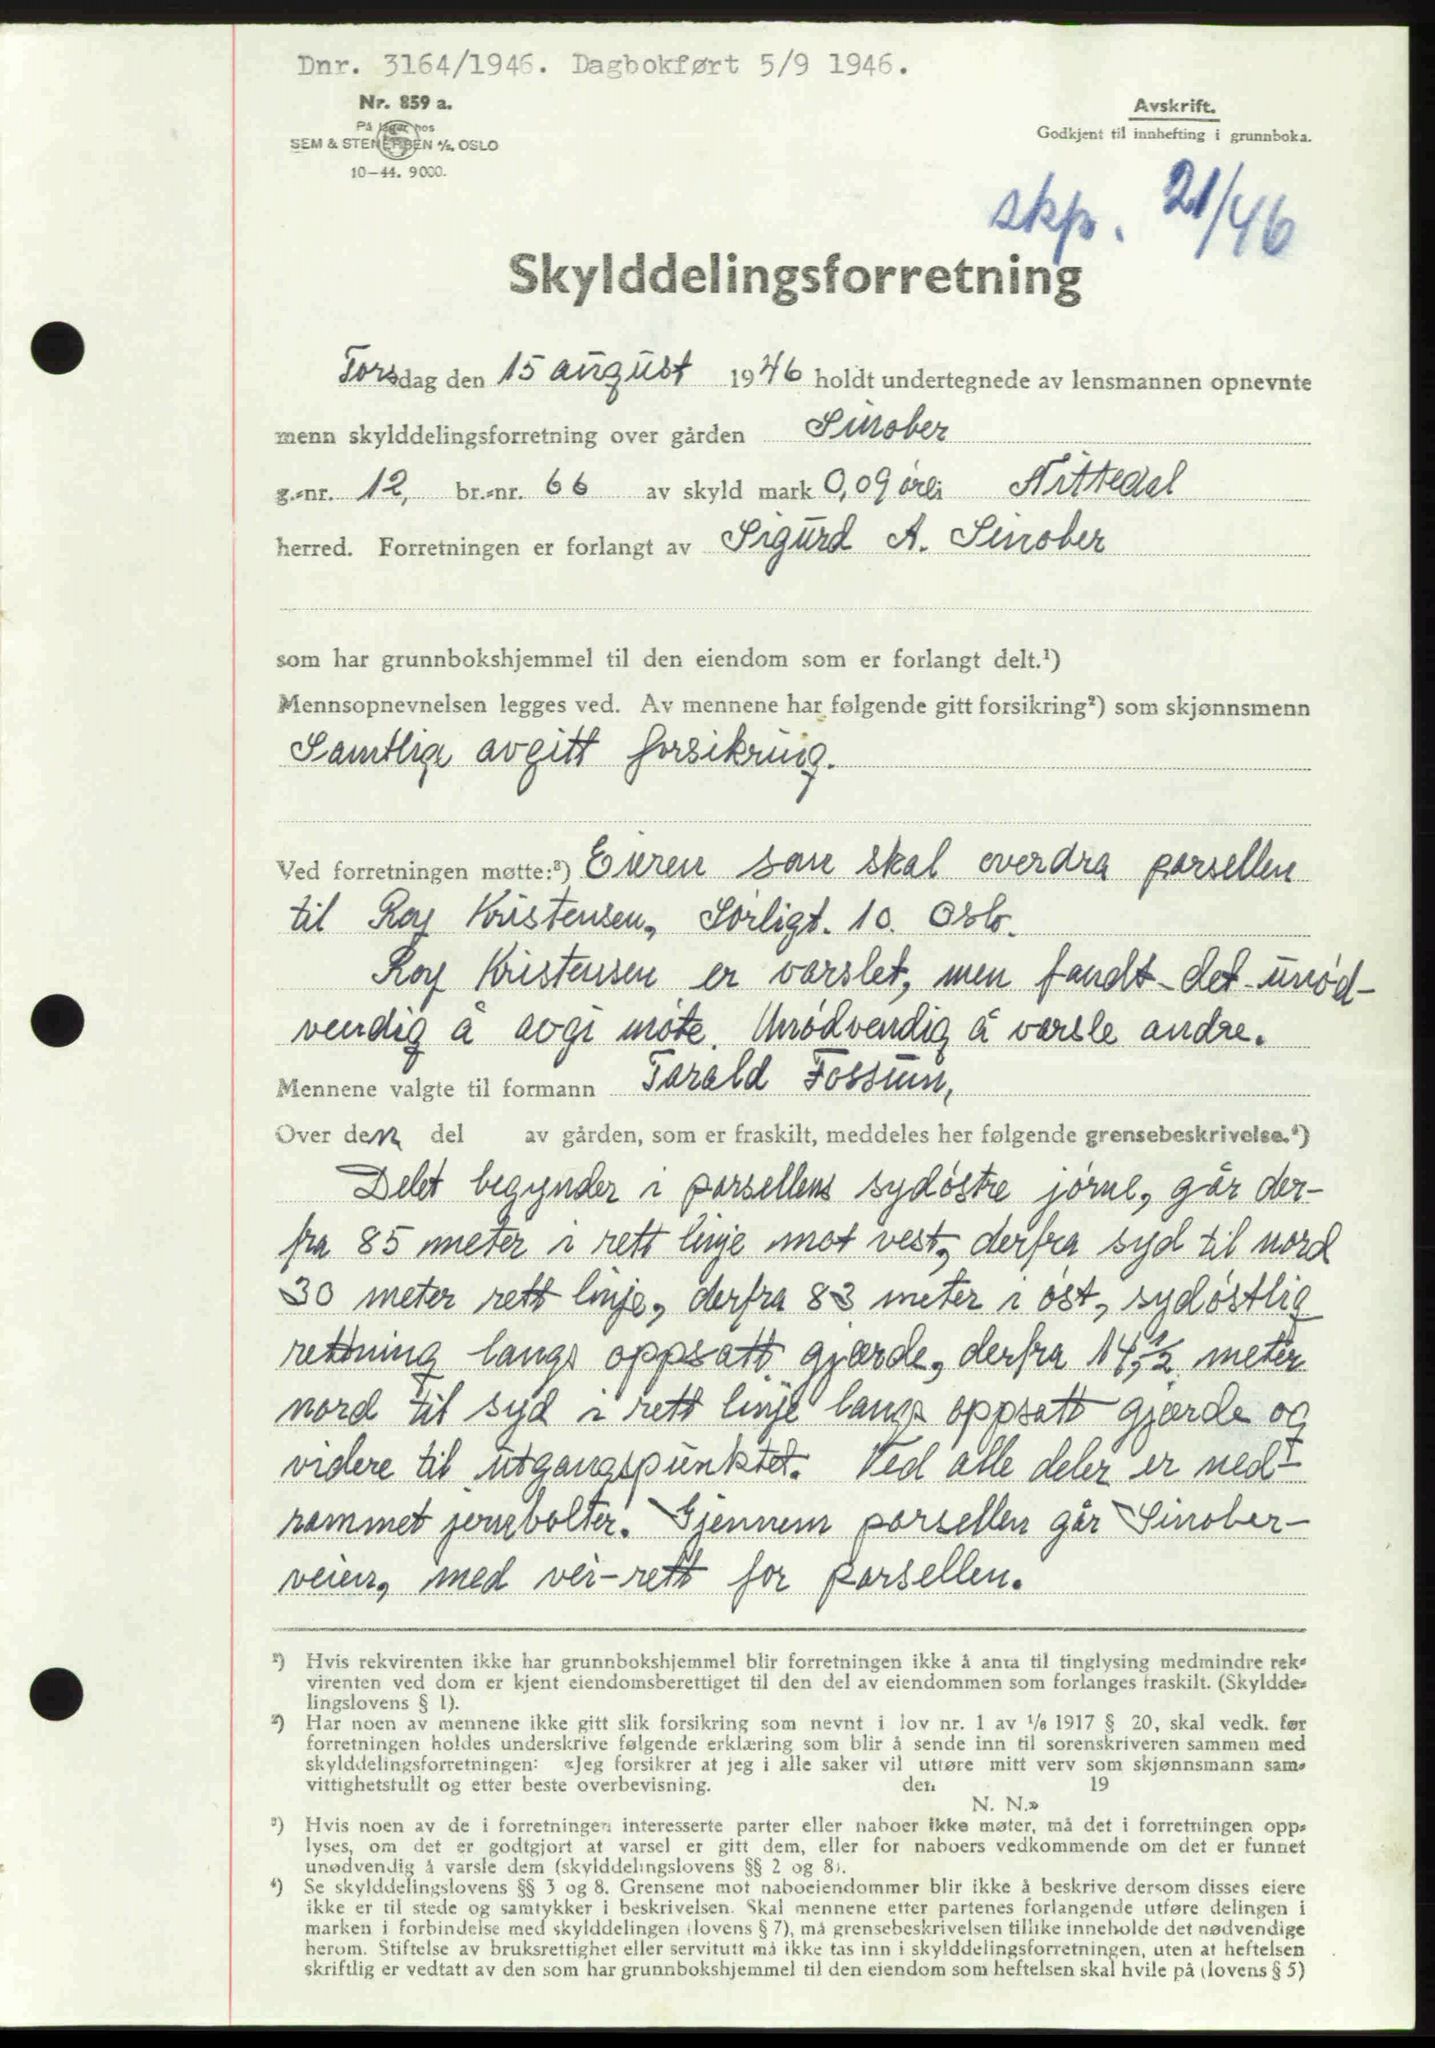 Dnr. 3164/1946. Dagbokført 5/9 1946.
Nr. 859 a.
På lager hos
SEM & STENERSEN A/S, OSLO
10-44. 9000.
Avskrift.
Godkjent til innhefting i grunnboka.
skp. 21/46
Skylddelingsforretning
Torsdag den 15 august 1946 holdt undertegnede av lensmannen opnevnte
menn skylddelingsforretning over gården Sinober
g.-nr. 12, br.-nr. 66 av skyld mark 0,09 øre i Nittedal
herred. Forretningen er forlangt av Sigurd A. Sinober
som har grunnbokshjemmel til den eiendom som er forlangt delt.¹)
Mennsopnevnelsen legges ved. Av mennene har følgende gitt forsikring²) som skjønnsmenn
Samtlige avgitt forsikring.
Ved forretningen møtte:³) Eieren som skal overdra parsellen
til Roy Kristensen, Sørligt. 10. Oslo.
Roy Kristensen er varslet, men fandt det unød-
vendig å avgi møte. Unødvendig å varsle andre.
Mennene valgte til formann Tarald Fossum,
Over den del av gården, som er fraskilt, meddeles her følgende grensebeskrivelse.⁴)
Delet begynder i parsellens sydøstre jørne, går der-
fra 85 meter i rett linje mot vest, derfra syd til nord
30 meter rett linje, derfra 83 meter i øst, sydøstlig
rettning langs oppsatt gjærde, derfra 14,½ meter
nord til syd i rett linje langs oppsatt gjærde og
videre til utgangspunktet. Ved alle deler er ned-
rammet jernbolter. Gjennem parsellen går Sinober-
veien, med vei-rett for parsellen.
¹) Hvis rekvirenten ikke har grunnbokshjemmel blir forretningen ikke å anta til tinglysing medmindre rek-
virenten ved dom er kjent eiendomsberettiget til den del av eiendommen som forlanges fraskilt. (Skyldde-
lingslovens § 1).
²) Har noen av mennene ikke gitt slik forsikring som nevnt i lov nr. 1 av 1/6 1917 § 20, skal vedk. før
forretningen holdes underskrive følgende erklæring som blir å sende inn til sorenskriveren sammen med
skylddelingsforretningen: «Jeg forsikrer at jeg i alle saker vil utføre mitt verv som skjønnsmann sam-
vittighetsfullt og etter beste overbevisning. den 19
N. N.»
³) Hvis noen av de i forretningen interesserte parter eller naboer ikke møter, må det i forretningen opp-
lyses, om det er godtgjort at varsel er gitt dem, eller for naboers vedkommende om det er funnet
unødvendig å varsle dem (skylddelingslovens §§ 2 og 8).
⁴) Se skylddelingslovens §§ 3 og 8. Grensene mot naboeiendommer blir ikke å beskrive dersom disses eiere
ikke er til stede og samtykker i beskrivelsen. Skal mennene etter partenes forlangende utføre delingen i
marken i forbindelse med skylddelingen (lovens § 7), må grensebeskrivelsen tillike inneholde det nødvendige
herom. Stiftelse av bruksrettighet eller servitutt må ikke tas inn i skylddelingsforretningen, uten at heftelsen
skriftlig er vedtatt av den som har grunnbokshjemmel til den eiendom som heftelsen skal hvile på (lovens § 5)